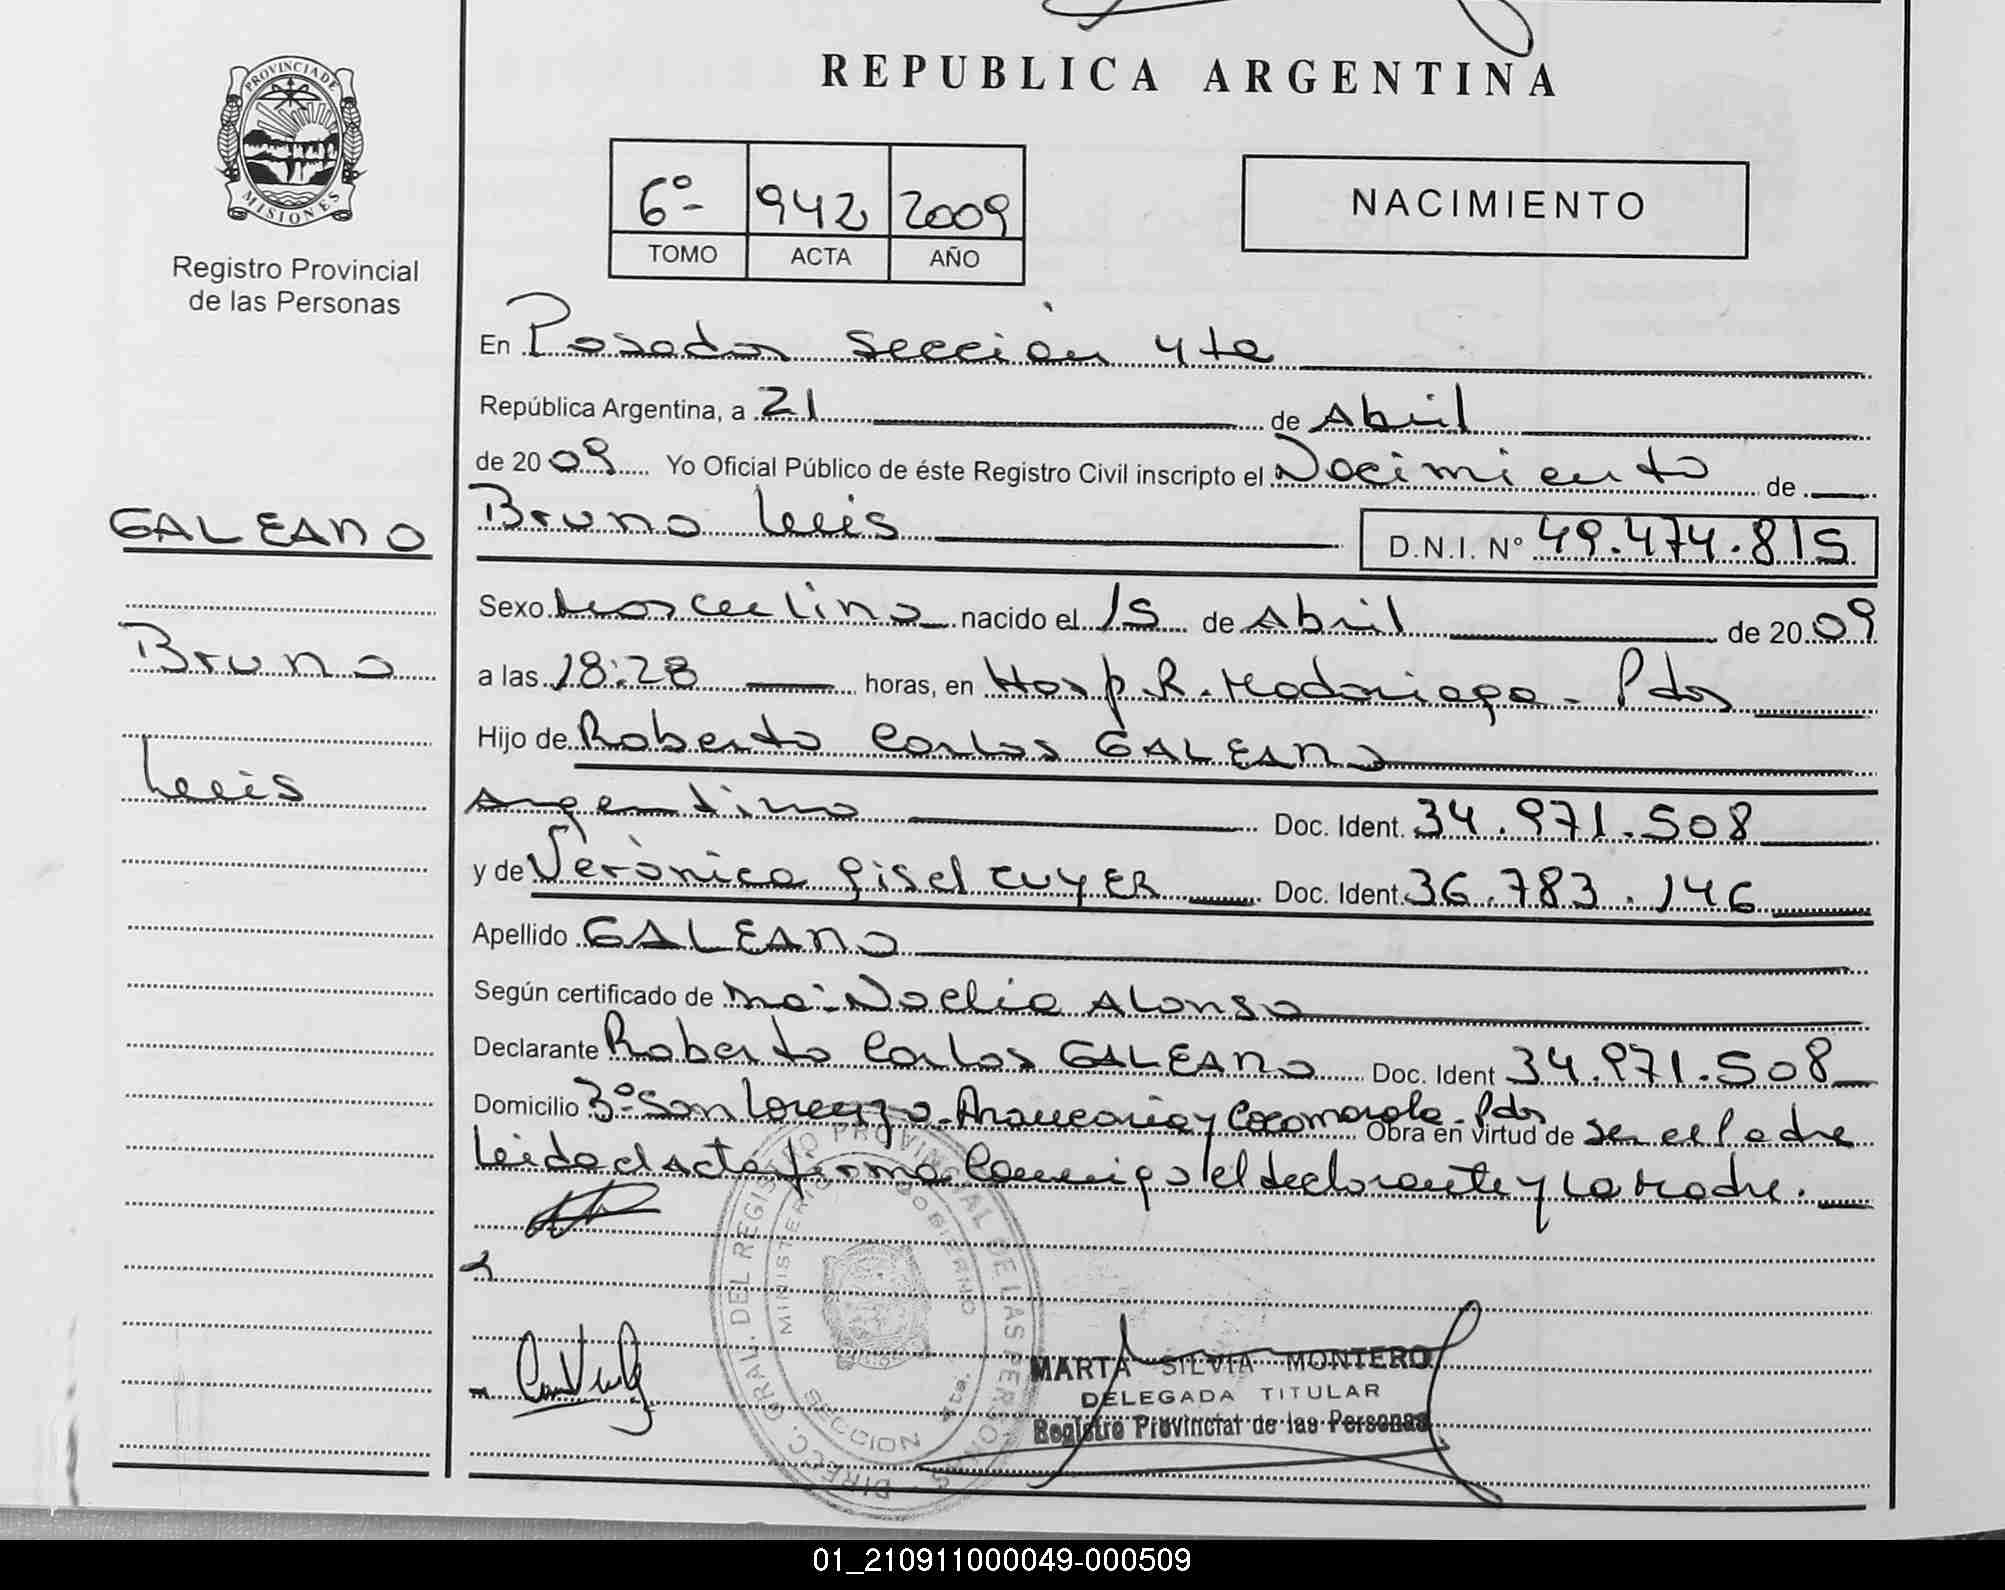 REPUBLICA ARGENTINA
PROVINCIA DE
MISIONES
Registro Provincial
de las Personas
6º 942 2009
TOMO ACTA AÑO
NACIMIENTO
En Posadas Sección 4ta
República Argentina, a 21 de Abril
de 2009 Yo Oficial Público de éste Registro Civil inscripto el Nacimiento de
Bruno Luis D.N.I. Nº 49.474.815
GALEANO
Bruno
Luis
Sexo Masculino nacido el 15 de Abril de 2009
a las 18:28 horas, en Hosp. R. Madariaga - Pdas
Hijo de Roberto Carlos GALEANO
Argentino Doc. Ident. 34.971.508
y de Verónica Gisel CUYER Doc. Ident. 36.783.146
Apellido GALEANO
Según certificado de Ma. Noelia Alonso
Declarante Roberto Carlos GALEANO Doc. Ident 34.971.508
Domicilio 3º San Lorenzo - Araucaria y Cocomarola - Pdas
Obra en virtud de Ser el Padre
Leida el Acta firma Conmigo el declarante y La Madre.
DIREC. GRAL. DEL REGISTRO PROVINCIAL DE LAS PERSONAS
MINISTERIO GOBIERNO
SECCION 4ta.
MARTA SILVIA MONTERO
DELEGADA TITULAR
Registro Provincial de las Personas
01_210911000049-000509